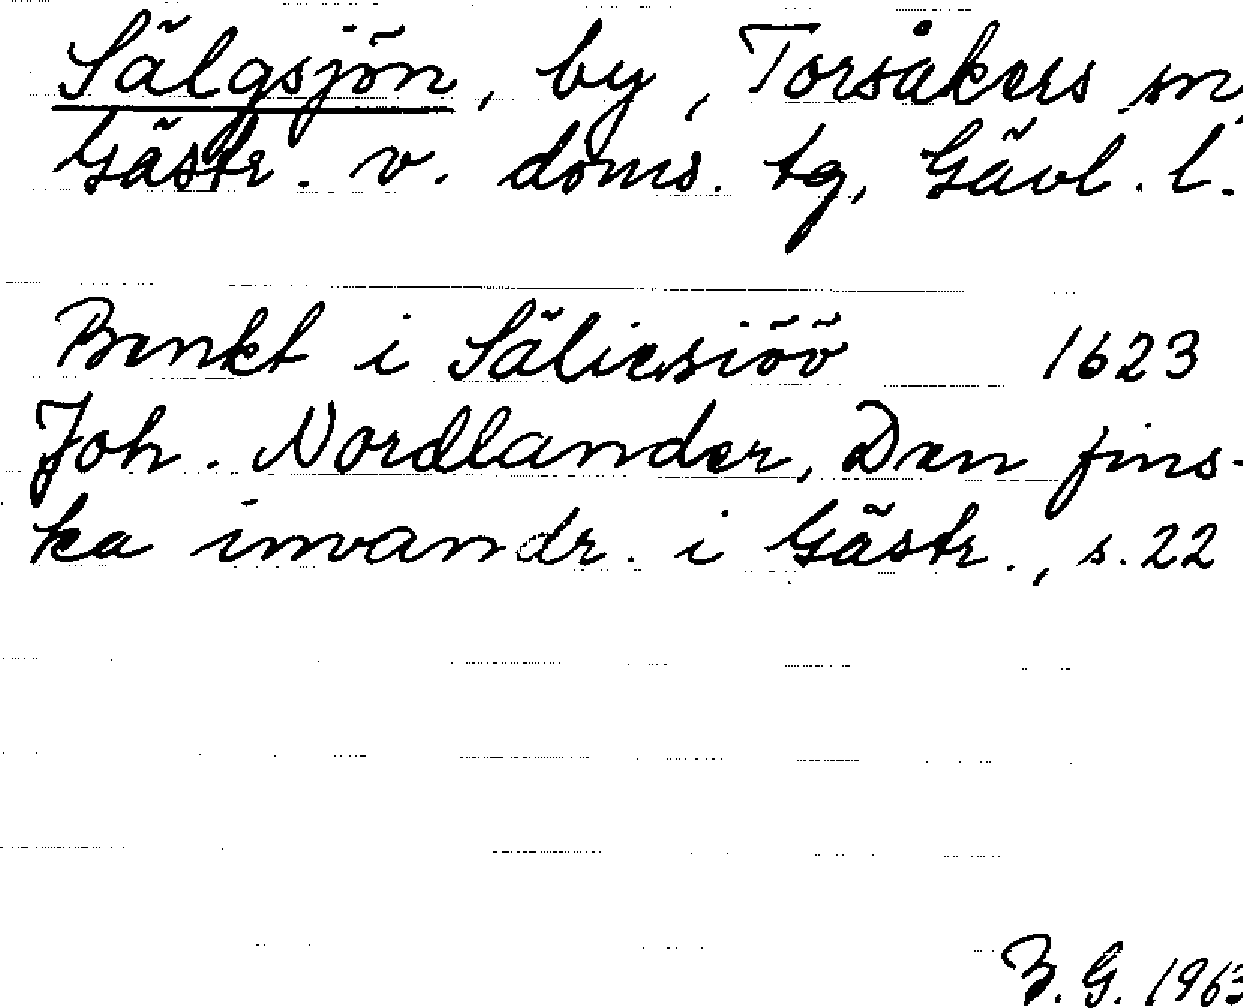 Sälgsjön, by, Torsåkers sn,
Gästr. v. doms. tg, Gävl. l.
Benkt i Säliesiöö 1623
Joh. Nordlander, Den fins-
ka invandr. i Gästr., s. 22
B. G. 1963